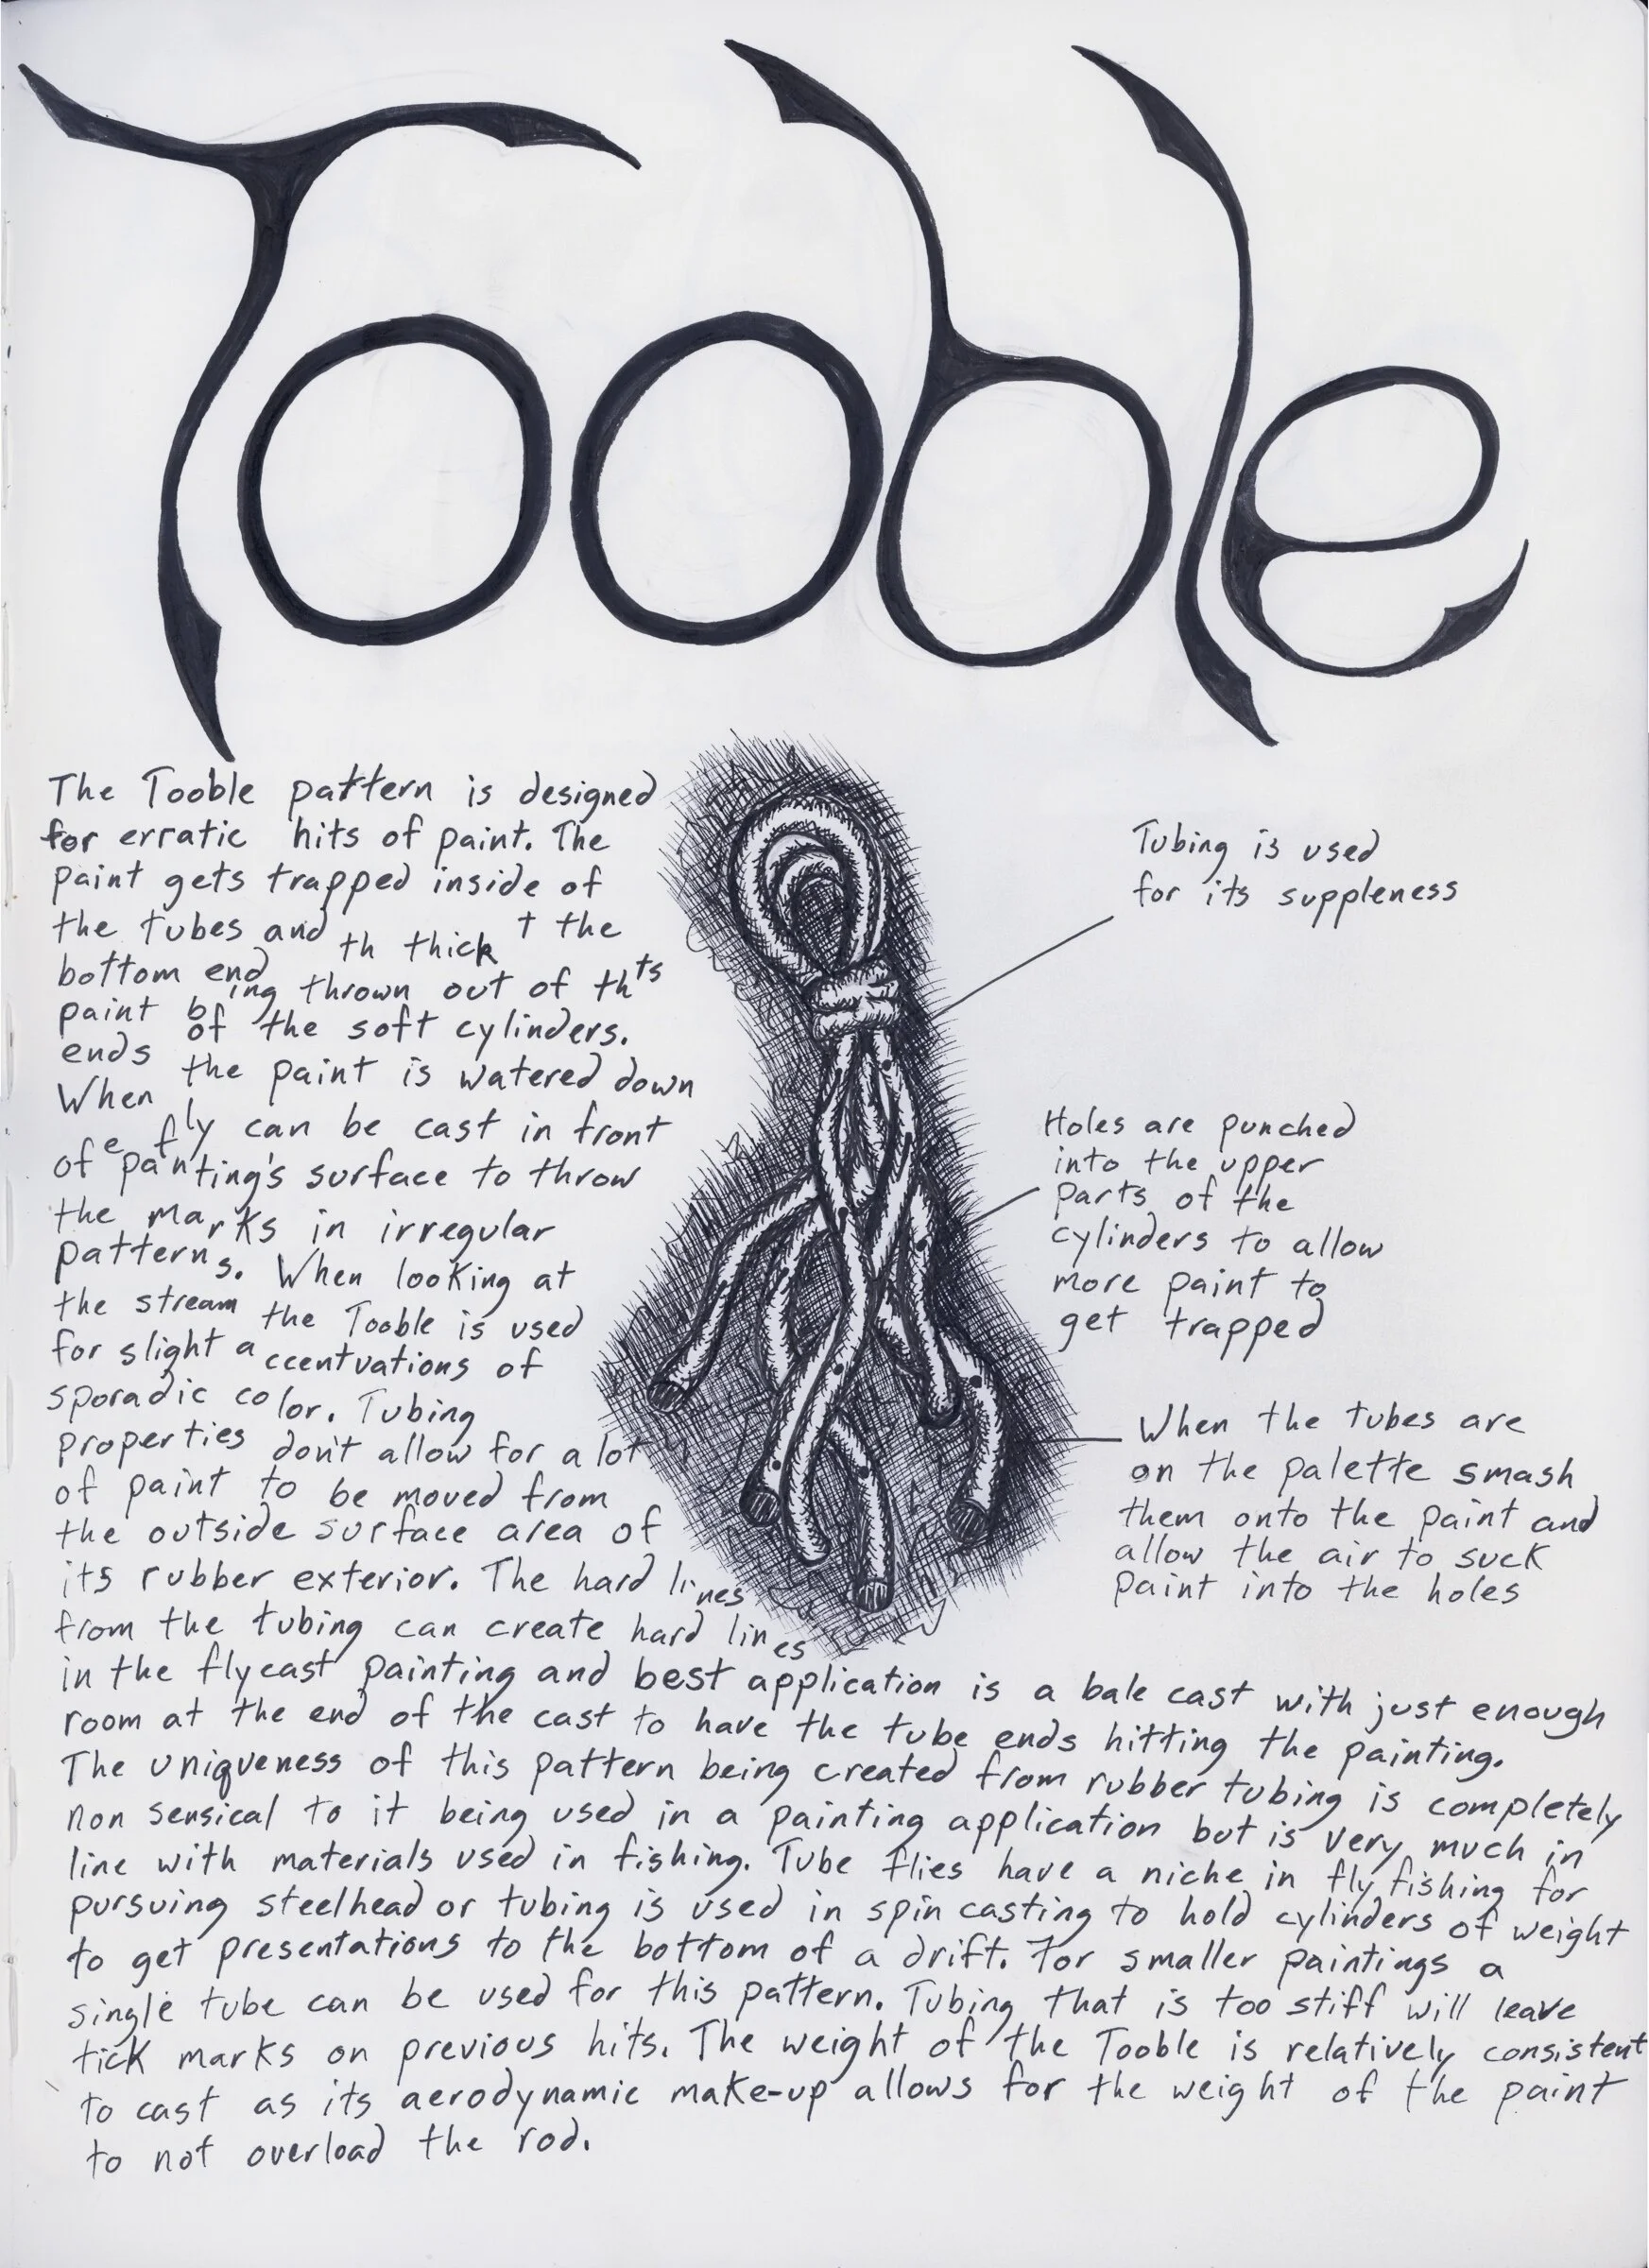 Tooble
The Tooble pattern is designed
for erratic hits of paint. The
paint gets trapped inside of
the tubes and th thick t the
bottom end
paint being thrown out of thts
ends of the soft cylinders.
When the paint is watered down
fly can be cast in front
of e painting's surface to throw
the marks in irregular
patterns. When looking at
the stream the Tooble is used
for slight accentuations of
sporadic color. Tubing
properties don't allow for a lot
of paint to be moved from
the outside surface area of
its rubber exterior. The hard lines
from the tubing can create hard lines
in the flycast painting and best application is a bale cast with just enough
room at the end of the cast to have the tube ends hitting the painting.
The uniqueness of this pattern being created from rubber tubing is completely
non sensical to it being used in a painting application but is very much in
line with materials used in fishing. Tube flies have a niche in fly fishing for
pursuing steelhead or tubing is used in spin casting to hold cylinders of weight
to get presentations to the bottom of a drift. For smaller paintings a
single tube can be used for this pattern. Tubing that is too stiff will leave
tick marks on previous hits. The weight of the Tooble is relatively consistent
to cast as its aerodynamic make-up allows for the weight of the paint
to not overload the rod.
Tubing is used
for its suppleness
Holes are punched
into the upper
parts of the
cylinders to allow
more paint to
get trapped
When the tubes are
on the palette smash
them onto the paint and
allow the air to suck
paint into the holes